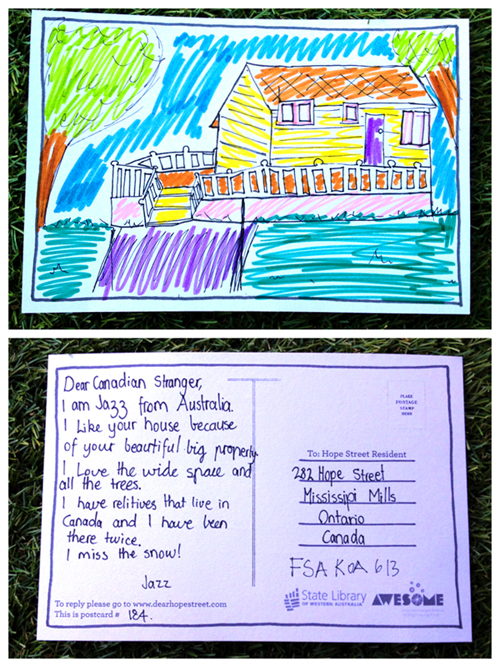 Dear Canadian Stranger,
I am Jazz from Australia.
I Like your house because
of your beautiful big property.
I Love the wide space and
all the trees.
I have relitives that live in
Canada and I have been
there twice.
I miss the snow!
Jazz
To reply please go to www.dearhopestreet.com
This is postcard # 184.
PLACE
POSTAGE
STAMP
HERE
To: Hope Street Resident
282 Hope Street
Mississipi Mills
Ontario
Canada
FSA K0A 613
State Library
OF WESTERN AUSTRALIA
AWESOME